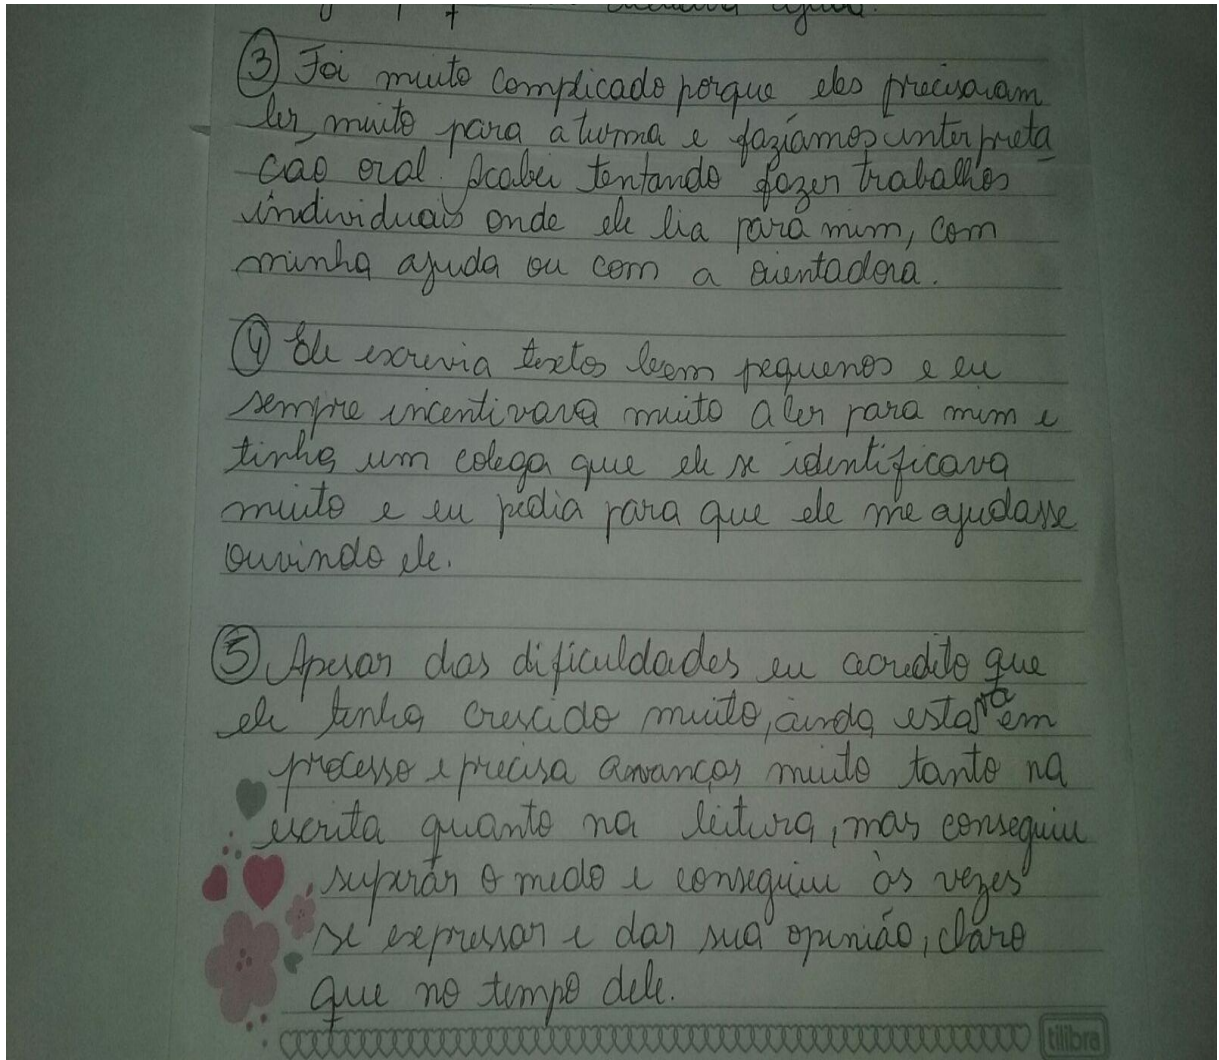 ③ Foi muito complicado porque eles precisavam
ler muito para a turma e fazíamos interpreta
ção oral. Acabei tentando fazer trabalhos
individuais onde ele lia para mim, com
minha ajuda ou com a orientadora.
④ Ele escrevia textos bem pequenos e eu
sempre incentivava muito a ler para mim e
tinha um colega que ele se identificava
muito e eu pedia para que ele me ajudasse
ouvindo ele.
⑤ Apesar das dificuldades eu acredito que
ele tenha crescido muito, ainda estava em
processo e precisa avançar muito tanto na
escrita quanto na leitura, mas conseguiu
superar o medo e conseguiu às vezes
se expressar e dar sua opinião, claro
que no tempo dele.
tilibra